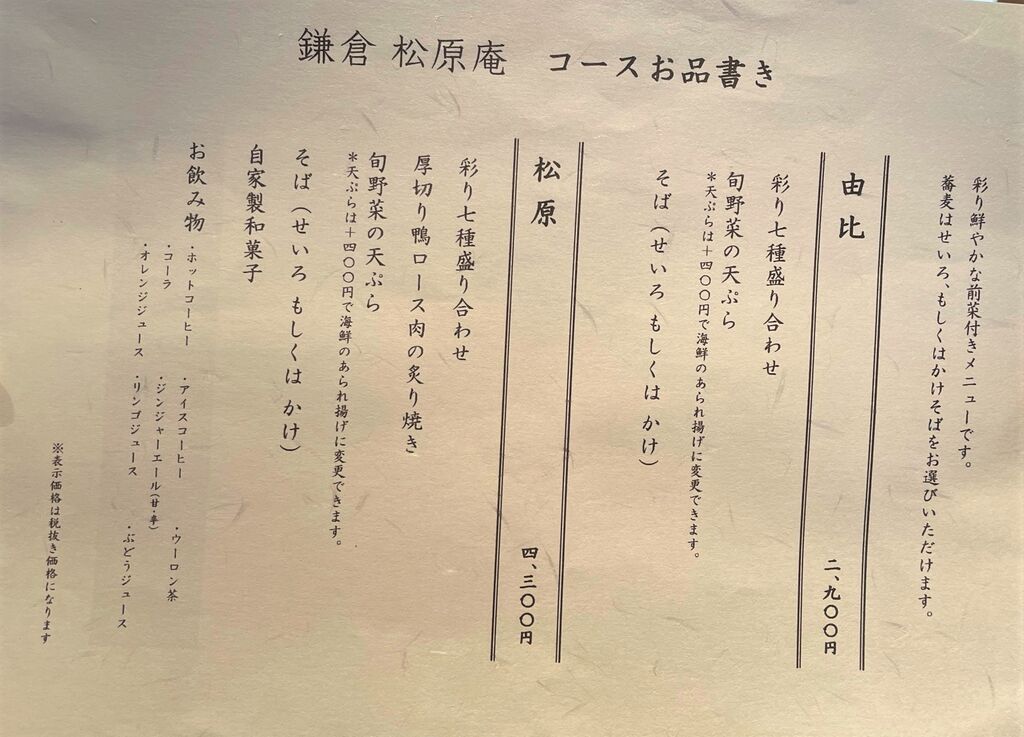 鎌倉 松原庵 コースお品書き
彩り鮮やかな前菜付きメニューです。
蕎麦はせいろ、もしくはかけそばをお選びいただけます。
由比 二、九〇〇円
彩り七種盛り合わせ
旬野菜の天ぷら
*天ぷらは+四〇〇円で海鮮のあられ揚げに変更できます。
そば(せいろ もしくは かけ)
松原 四、三〇〇円
彩り七種盛り合わせ
厚切り鴨ロース肉の炙り焼き
旬野菜の天ぷら
*天ぷらは+四〇〇円で海鮮のあられ揚げに変更できます。
そば(せいろ もしくは かけ)
自家製和菓子
お飲み物
・ホットコーヒー ・アイスコーヒー ・ウーロン茶
・コーラ ・ジンジャーエール(甘・辛)
・オレンジジュース ・リンゴジュース ・ぶどうジュース
※表示価格は税抜き価格になります